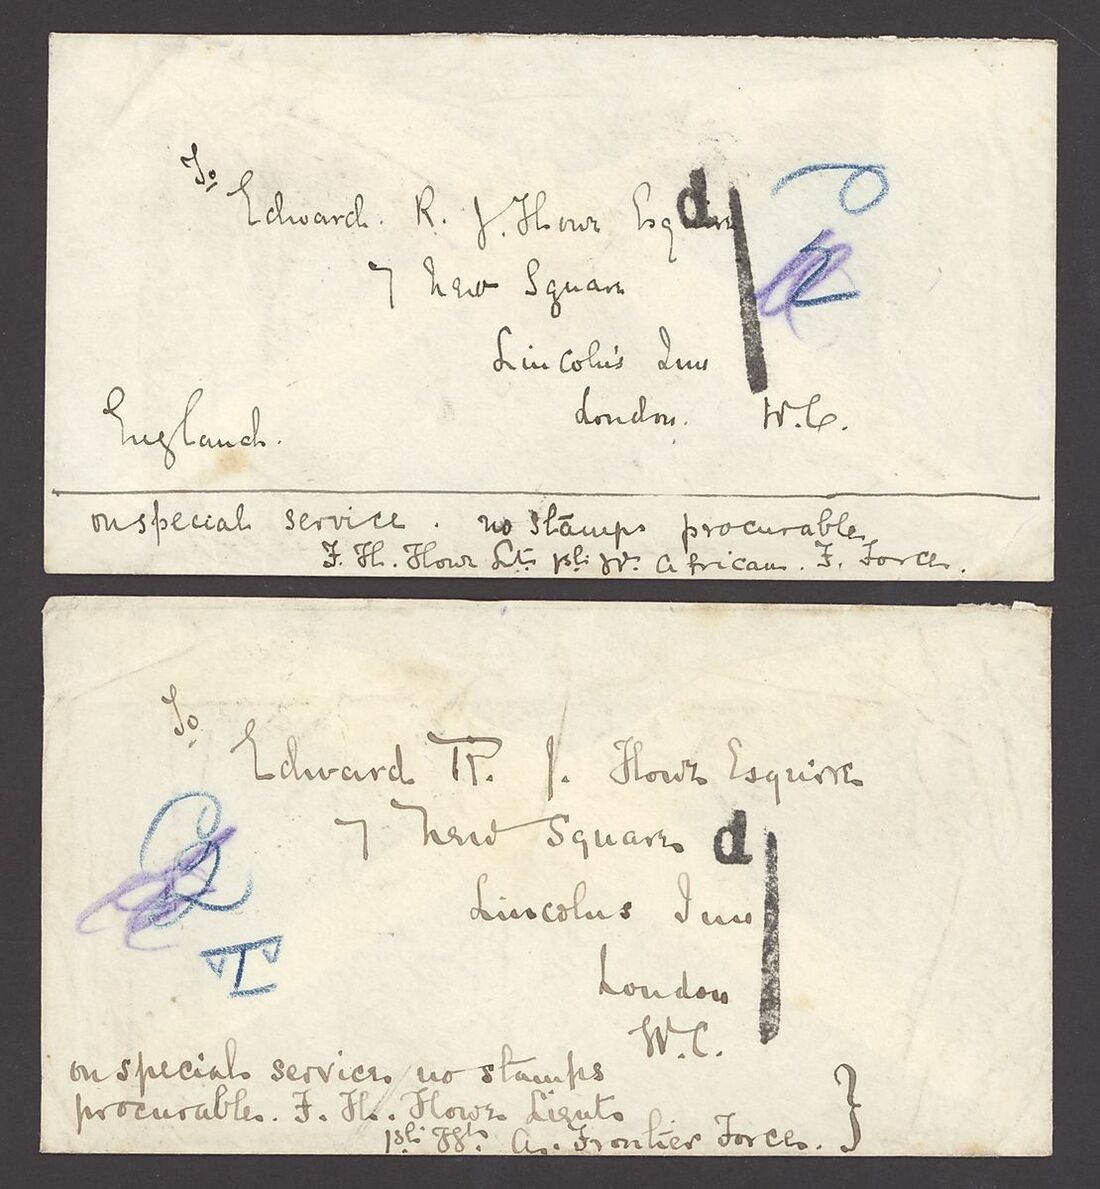 To
Edward R. J. Howe Esquire
7 New Square
Lincoln's Inn
London. W.C.
England.
on special service. no stamps procurable
F. H. Howe Lt. 1st W. African. F. Force.
d
1
2
To
Edward R. J. Howe Esquire
7 New Square
Lincolns Inn
London
W.C.
on special service no stamps
procurable. F. H. Howe Lieut
1st Wst. A. Frontier Force. }
d
1
T